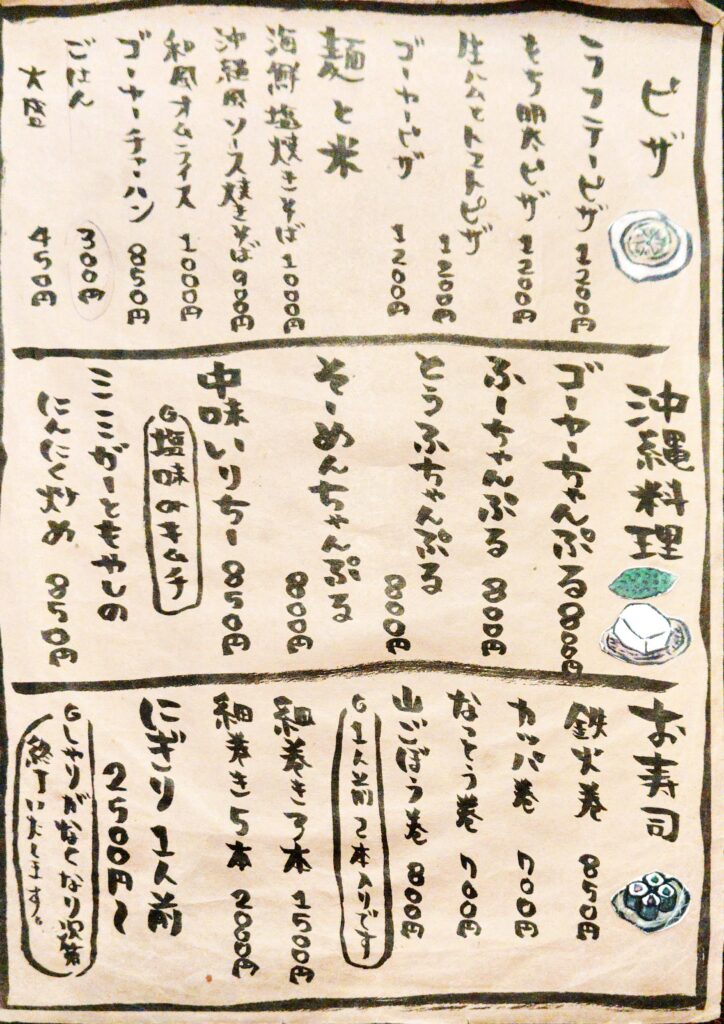 ピザ
ラフテーピザ 1200円
もち明太ピザ 1200円
生ハムとトマトピザ 1200円
ゴーヤーピザ 1200円
麺と米
海鮮塩焼きそば 1000円
沖縄風ソース焼きそば 900円
和風オムライス 1000円
ゴーヤーチャーハン 850円
ごはん 300円
大盛 450円
沖縄料理
ゴーヤーちゃんぷる 800円
ふーちゃんぷる 800円
とうふちゃんぷる 800円
そーめんちゃんぷる 800円
中味いりちー 850円
塩味orキムチ
ミミガーともやしの
にんにく炒め 850円
お寿司
鉄火巻 850円
カッパ巻 700円
なっとう巻 700円
山ごぼう巻 800円
1人前2本入りです
細巻き3本 1500円
細巻き5本 2000円
にぎり1人前
2500円〜
しゃりがなくなり次第
終了いたします。